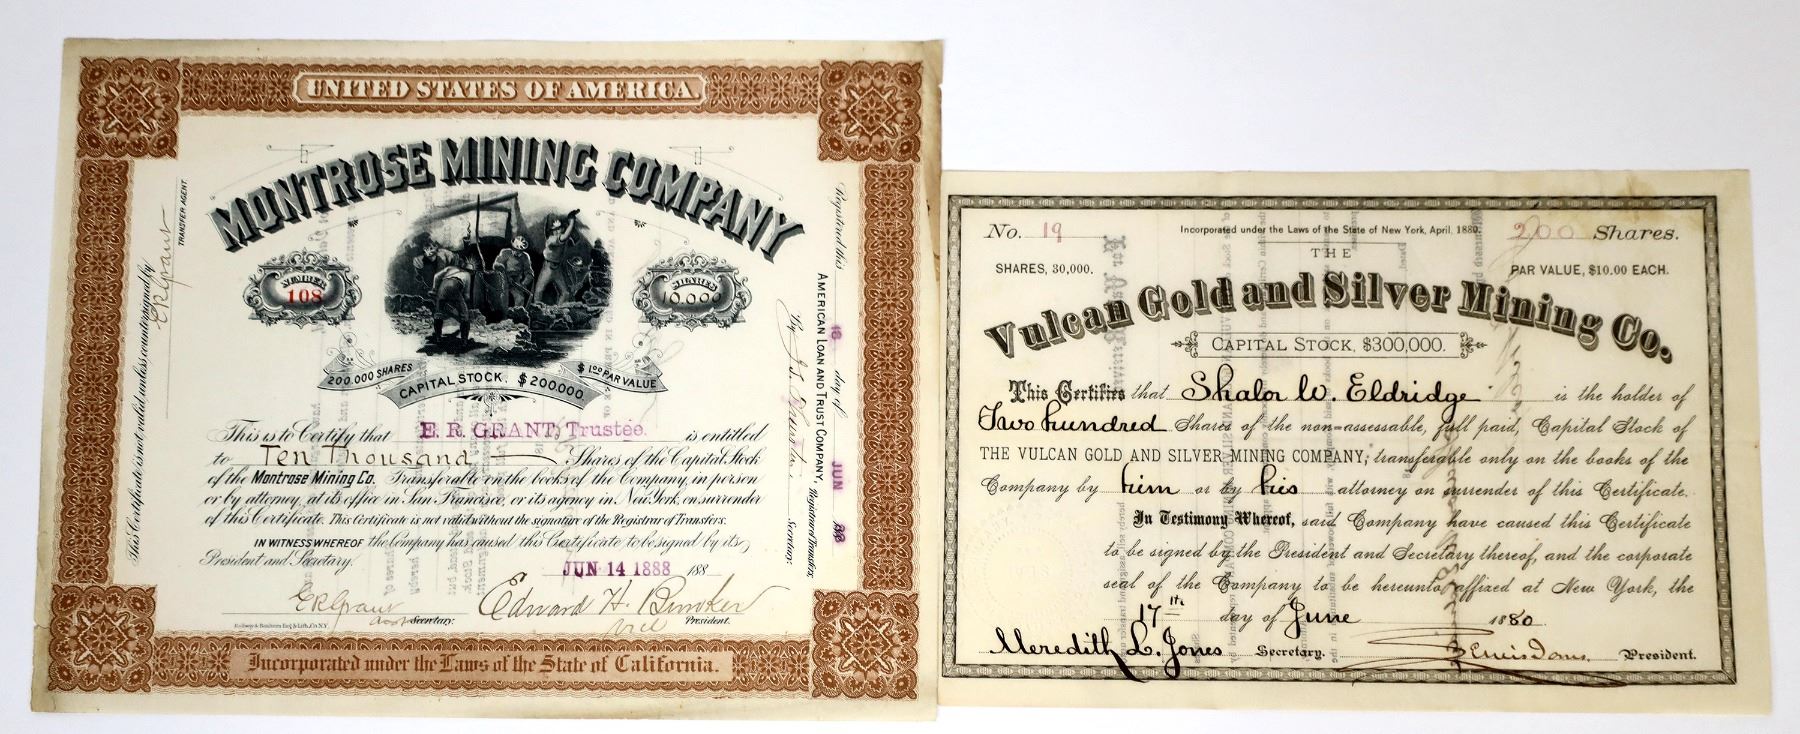 UNITED STATES OF AMERICA.
MONTROSE MINING COMPANY
NUMBER
108
SHARES
10.000
200.000 SHARES
CAPITAL STOCK, $200.000.
$1.00 PAR VALUE
This is to Certify that E. R. GRANT, Trustee. is entitled
to Ten Thousand Shares of the Capital Stock
of the Montrose Mining Co. Transferable on the books of the Company, in person
or by attorney, at its office in San Francisco, or its agency in New York, on surrender
of this Certificate. This Certificate is not valid without the signature of the Registrar of Transfers.
IN WITNESS WHEREOF the Company has caused this Certificate to be signed by its
President and Secretary.
JUN 14 1888 188
E R Grant
Asst Secretary.
Edward H.
Vice President.
Incorporated under the Laws of the State of California.
This Certificate is not valid unless countersigned by
E R Grant
TRANSFER AGENT.
Registered this 16 day of JUN 88
AMERICAN LOAN AND TRUST COMPANY, Registrar of Transfers,
By Secretary.
No. 19
Incorporated under the Laws of the State of New York, April, 1880.
200 Shares.
SHARES, 30,000.
THE
PAR VALUE, $10.00 EACH.
Vulcan Gold and Silver Mining Co.
CAPITAL STOCK, $300,000.
This Certifies that Shalor W. Eldridge is the holder of
Two hundred Shares of the non-assessable, full paid, Capital Stock of
THE VULCAN GOLD AND SILVER MINING COMPANY, transferable only on the books of the
Company by him or by his attorney on surrender of this Certificate.
In Testimony Whereof, said Company have caused this Certificate
to be signed by the President and Secretary thereof, and the corporate
seal of the Company to be hereunto affixed at New York, the
17th day of June 1880
Meredith L. Jones Secretary.
President.